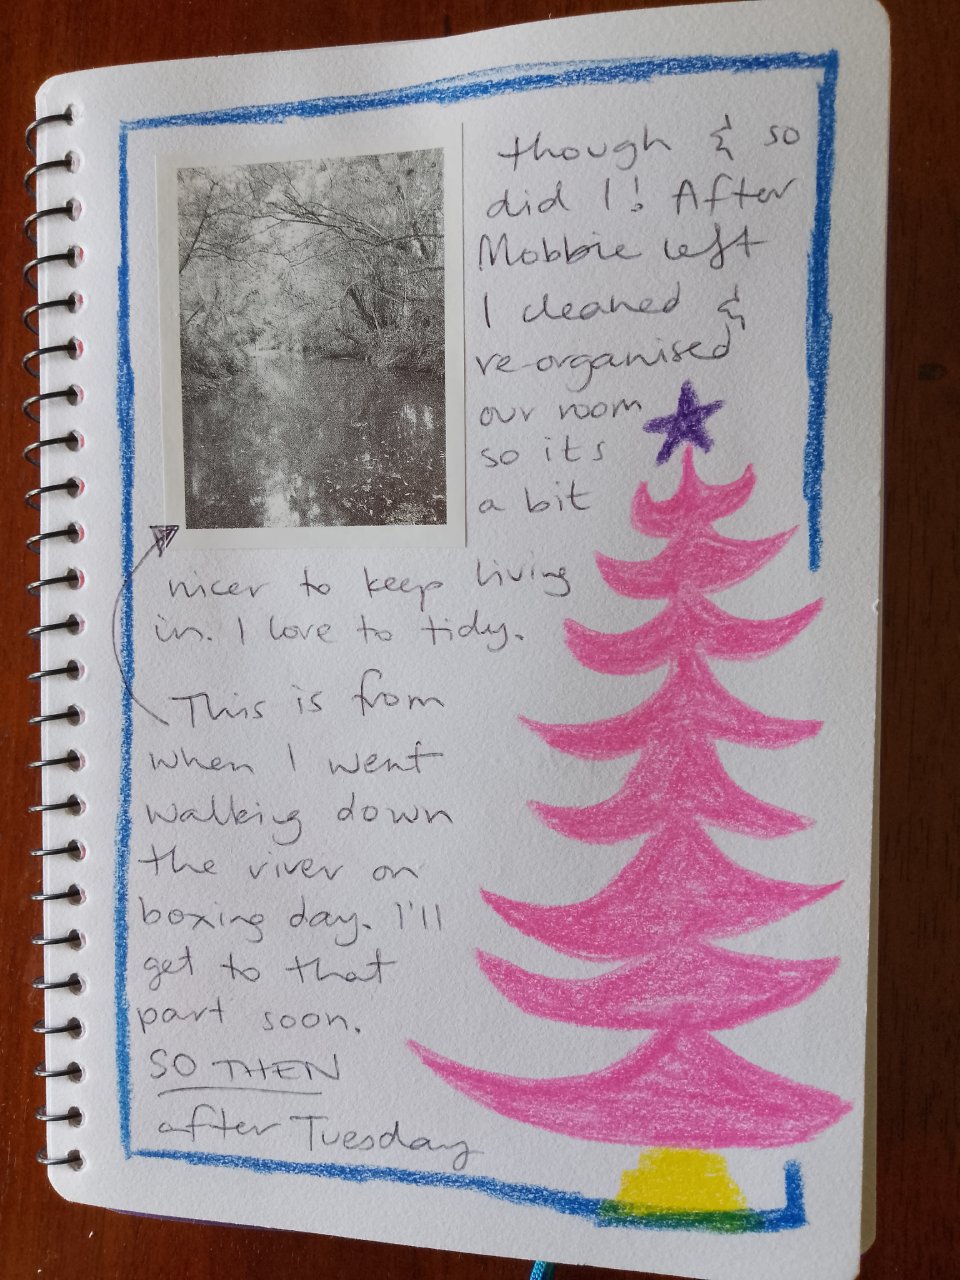 though & so
did I! After
Mobbie left
I cleaned &
re-organised
our room
so its
a bit
nicer to keep living
in. I love to tidy.
This is from
when I went
walking down
the river on
boxing day. I'll
get to that
part soon.
SO THEN
after Tuesday